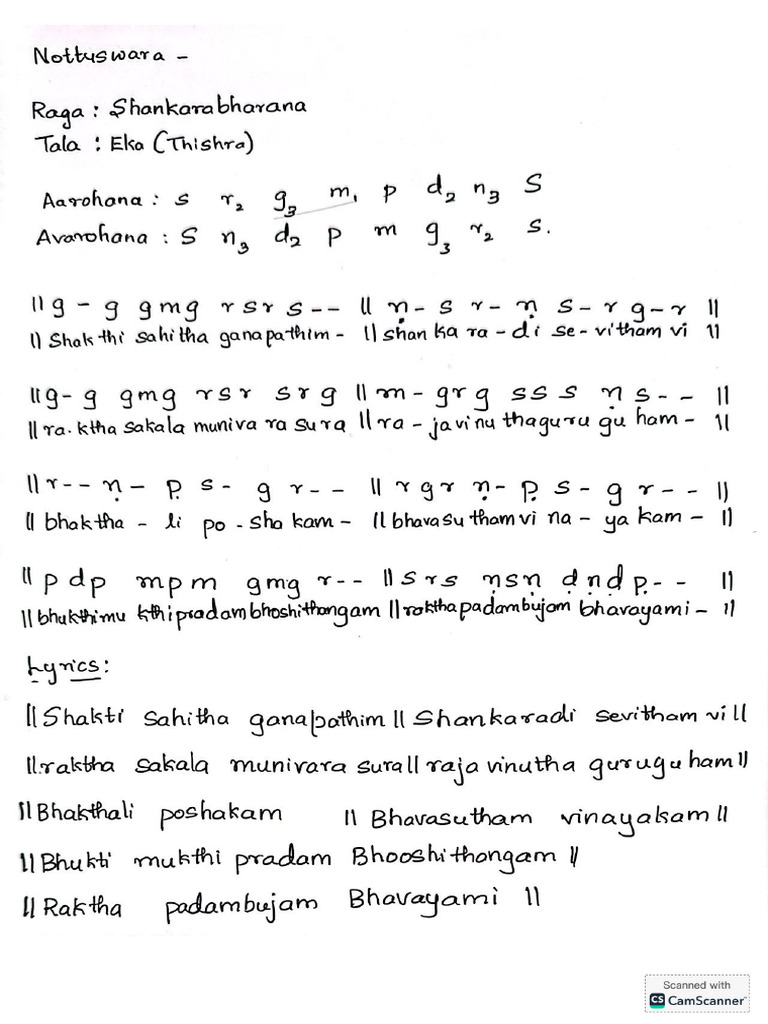 Nottuswara -
Raga : Shankarabharana
Tala : Eka (Thishra)
Aarohana : s r₂ g₃ m₁ p d₂ n₃ S
Avarohana : S n₃ d₂ p m g₃ r₂ s.
|| g - g gmg rsrs - - || ṇ - s r - ṇ s - r g - r ||
|| Shak thi sahitha ganapathim - || shan ka ra - di se - vitham vi ||
|| g - g gmg rsr srg || m - grg sss ṇ s - - ||
|| ra. ktha sakala muniva ra su ra || ra - ja vinu thaguru gu ham - ||
|| r - - ṇ - p̣ s - g r - - || r g r ṇ - p̣ s - g r - - ||
|| bhaktha - li po - sha kam - || bhavasu tham vi na - ya kam - ||
|| p d p mpm gmg r - - || s r s ṇsṇ ḍṇḍ p̣ - - ||
|| bhukthimu kthi pradam bhoshithangam || raktha padambujam bhavayami - ||
Lyrics :
|| Shakti sahitha ganapathim || Shankaradi sevitham vi ||
|| raktha sakala munivara sura || raja vinutha guruguham ||
|| Bhakthali poshakam || Bhavasutham vinayakam ||
|| Bhukti mukthi pradam Bhooshithangam ||
|| Raktha padambujam Bhavayami ||
Scanned with
CS CamScanner